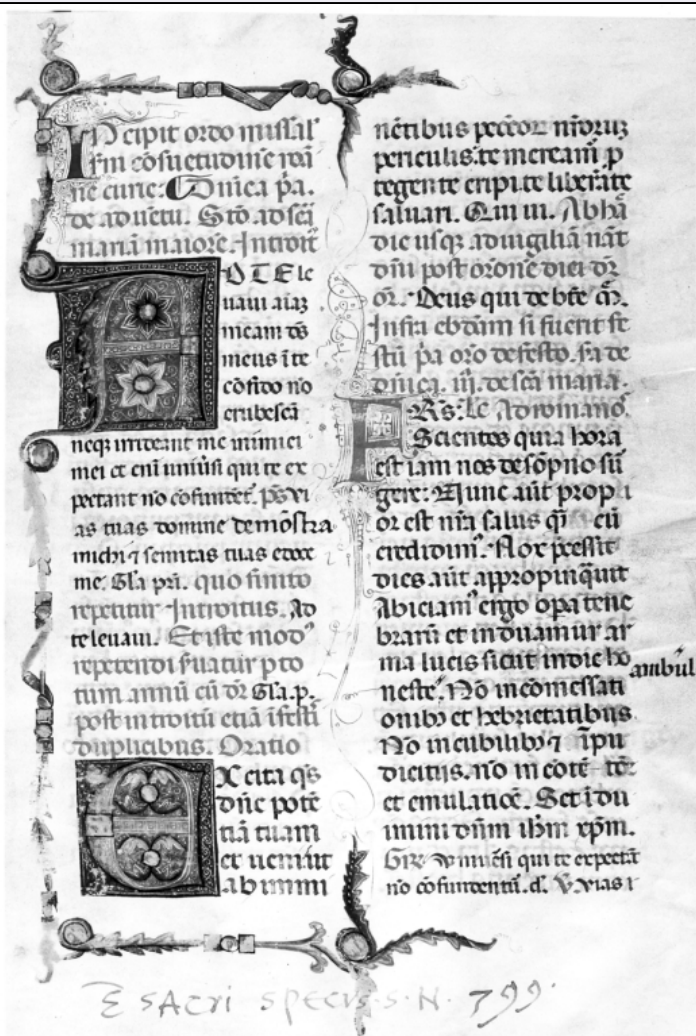 INcipit ordo missal
s̄m ɔ̄suetudinē roā
ne curie. Dn̄ica p̄a.
de aduētu. Stō ad scā
mariā maiorē. Introit̄
AD TE le
uaui aīaz
meam d̄s
meus ī te
cōfido nō
erubescā
neqꝫ irrideant me inimici
mei et enī uniūsi qui te ex
pectant nō cōfundēt. p̄s Vi
as tuas domine demōstra
michi ⁊ semitas tuas edoce
me. Gl̄a pr̄i. quo finito
repetitur Introitus. Ad
te leuaui. Et iste modꝰ
repetendi s̄uatur p to
tum annū cū dr̄ Gl̄a p̄.
post introitū etiā ī festī
duplicibus. Oratio
EXcita q̄s
dn̄e potē
tiā tuam
et ueni ut
ab immi
nētibus pecc̄oꝝ nr̄oruꝫ
periculis. te meream̄ p
tegente eripi. te liberāte
saluari. Qui ui. Ab hā
die usqꝫ ad uigiliā nāt
dn̄i post orōnē diei dr̄
or̄. Deus qui de btē m̄.
Infra ebdam̄ si fuerit fe
stū p̄a orō de festo. s̄a de
dn̄ica. iii. de scā maria.
Ad romanoꝰ.
FRs̄: Scientes quia hora
est iam nos de sōpno sū
gere. Nunc aūt propi
or est nr̄a salus q̄ cū
credidimꝰ. Nox p̄cessit
dies aūt appropinquit
Abiciamꝰ ergo op̄a tene
brarū et induamur ar
ma lucis sicut in die ho
ambulꝰ
nesteꝰ. Nō in comessati
onibꝫ et hebrietatibus
Nō in cubilibꝫ ⁊ īpu
dicitijs. nō in cōtē tōē
et emulatiōē. Set īdu
imini dn̄m ih̄m xp̄m.
Gr̄. Vniuersi qui te expectāt
nō cōfundentū. d̄. V̄ Vias t
E sacri specus. s. N. 799.